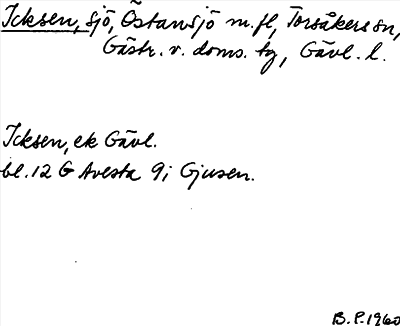 Icksen, sjö, Östansjö m.fl, Torsåkers sn,
Gästr. v. doms. tg, Gävl. l.
Icksen, ek Gävl.
bl. 12 G Avesta 9i Gjusen.
B.P. 1960